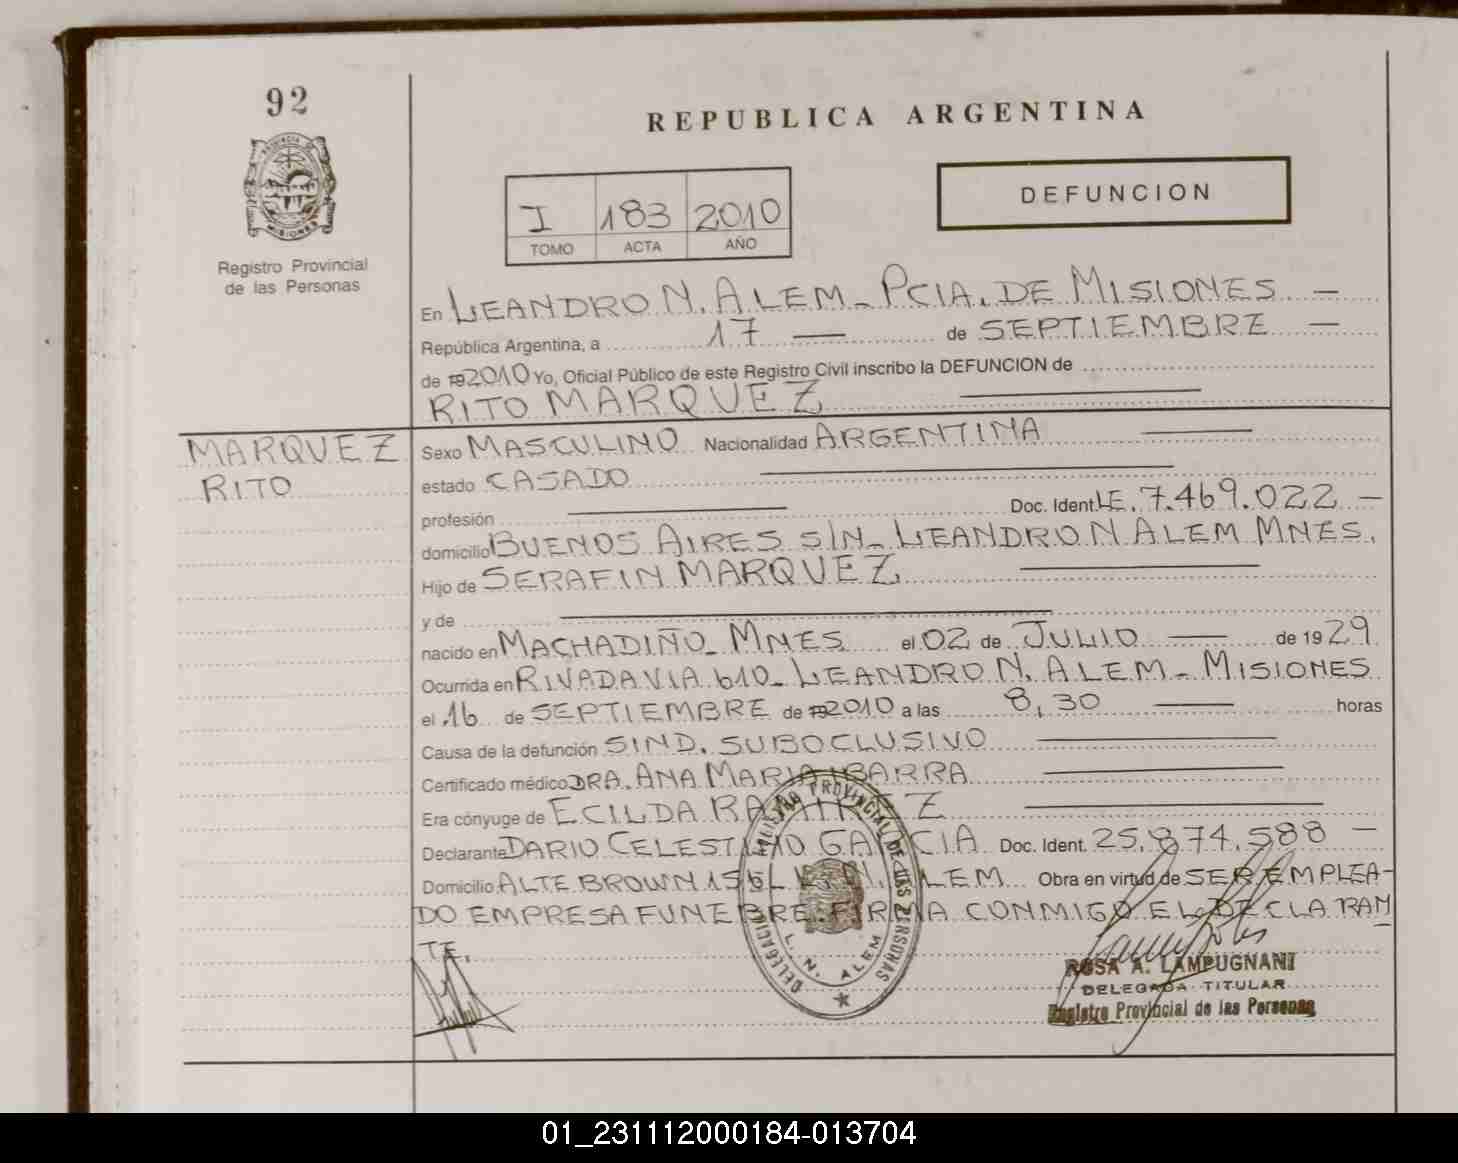 92
REPUBLICA ARGENTINA
PROVINCIA DE MISIONES
Registro Provincial
de las Personas
DEFUNCION
I 183 2010
TOMO ACTA AÑO
En LEANDRO N. ALEM - PCIA. DE MISIONES —
República Argentina, a 17 — de SEPTIEMBRE —
de 19 2010 Yo, Oficial Público de este Registro Civil inscribo la DEFUNCION de
RITO MARQUEZ
MARQUEZ
RITO
Sexo MASCULINO Nacionalidad ARGENTINA
estado CASADO
profesión — Doc. Ident. LE. 7.469.022 —
domicilio BUENOS AIRES S/N - LEANDRO N ALEM MNES.
Hijo de SERAFIN MARQUEZ
y de —
nacido en MACHADIÑO - MNES el 02 de JULIO — de 1929
Ocurrida en RIVADAVIA 610 - LEANDRO N. ALEM - MISIONES
el 16 de SEPTIEMBRE de 19 2010 a las 8,30 — horas
Causa de la defunción SIND. SUBOCLUSIVO
Certificado médico DRA. ANA MARIA IBARRA
Era cónyuge de ECILDA RAMIREZ
Declarante DARIO CELESTINO GARCIA Doc. Ident. 25.874.588 —
Domicilio ALTE BROWN ALEM Obra en virtud de SER EMPLEA-
DO EMPRESA FUNEBRE FIRMA CONMIGO EL DECLARAN
TE.
REGISTRO PROVINCIAL DE LAS PERSONAS
DELEGACION L. N. ALEM
ROSA A. LAMPUGNANI
DELEGADA TITULAR
Registro Provincial de las Personas
01_231112000184-013704